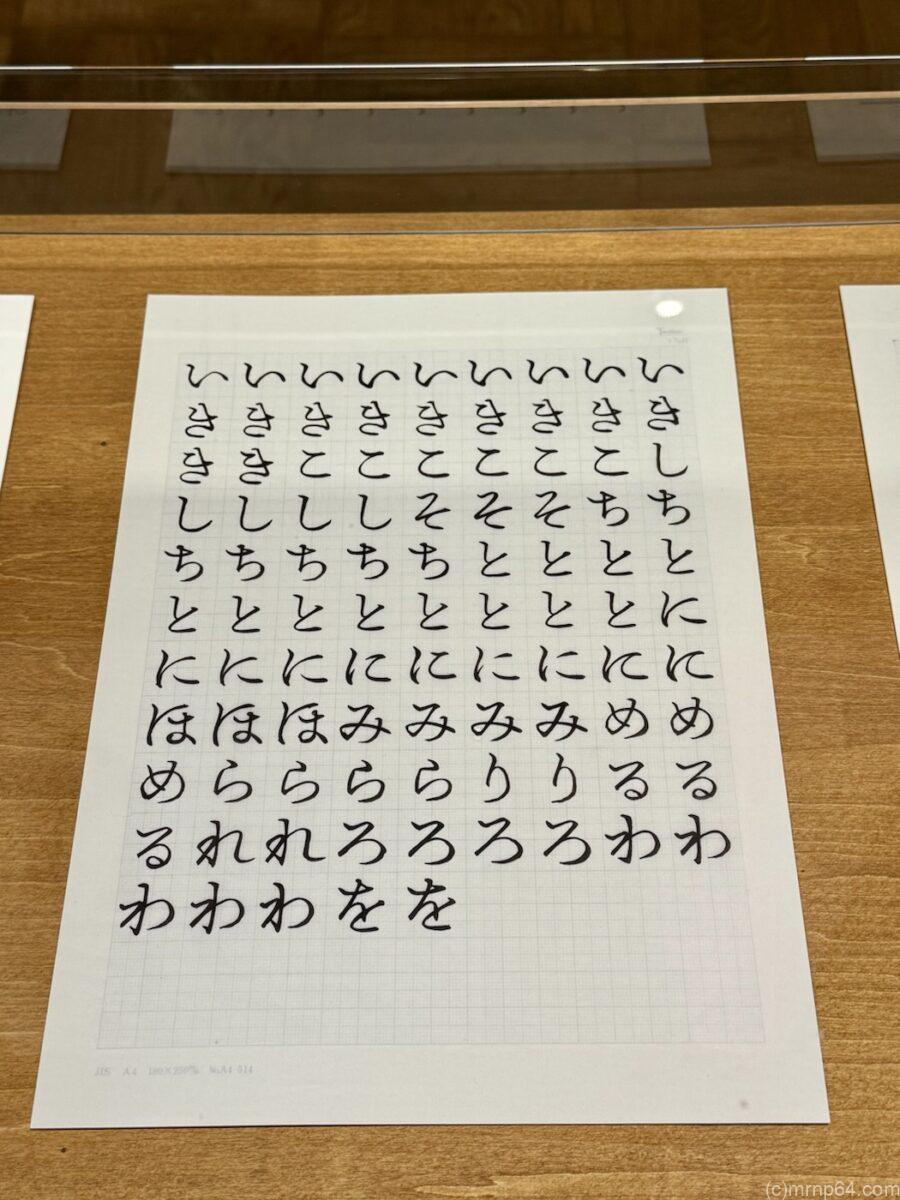 いいいいいいいいい
ききききききききき
ききここここここし
ししししそそそちち
ちちちちちとととと
ととととととととに
にににににににに に
ほほほみみみみめめ
めららららりりるる
るれれろろろろわわ
わわわをを
JIS A4 180×250㎜
(c)mrnp64.com